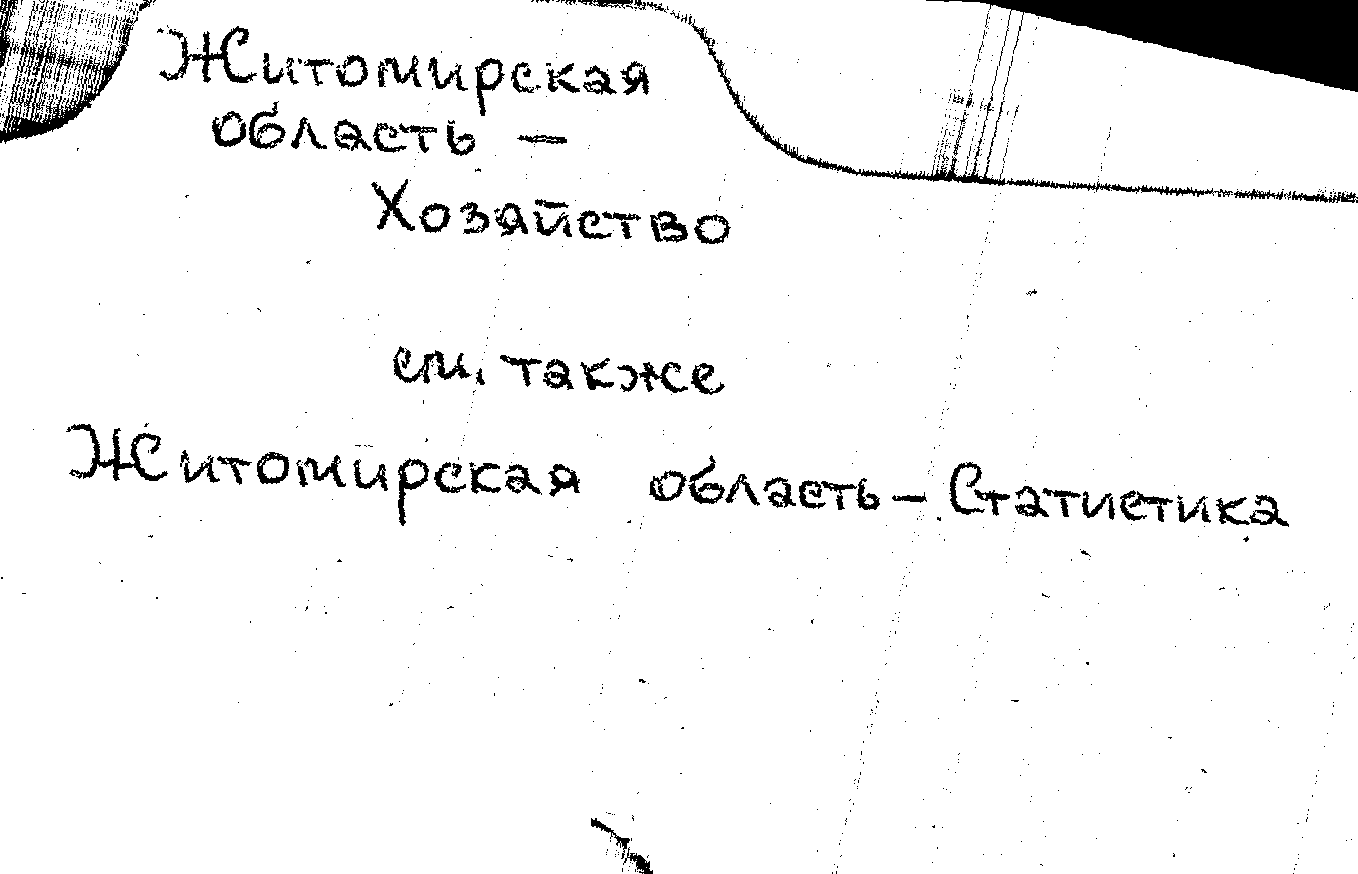 Житомирская
область –
Хозяйство
см. также
Житомирская область – Статистика